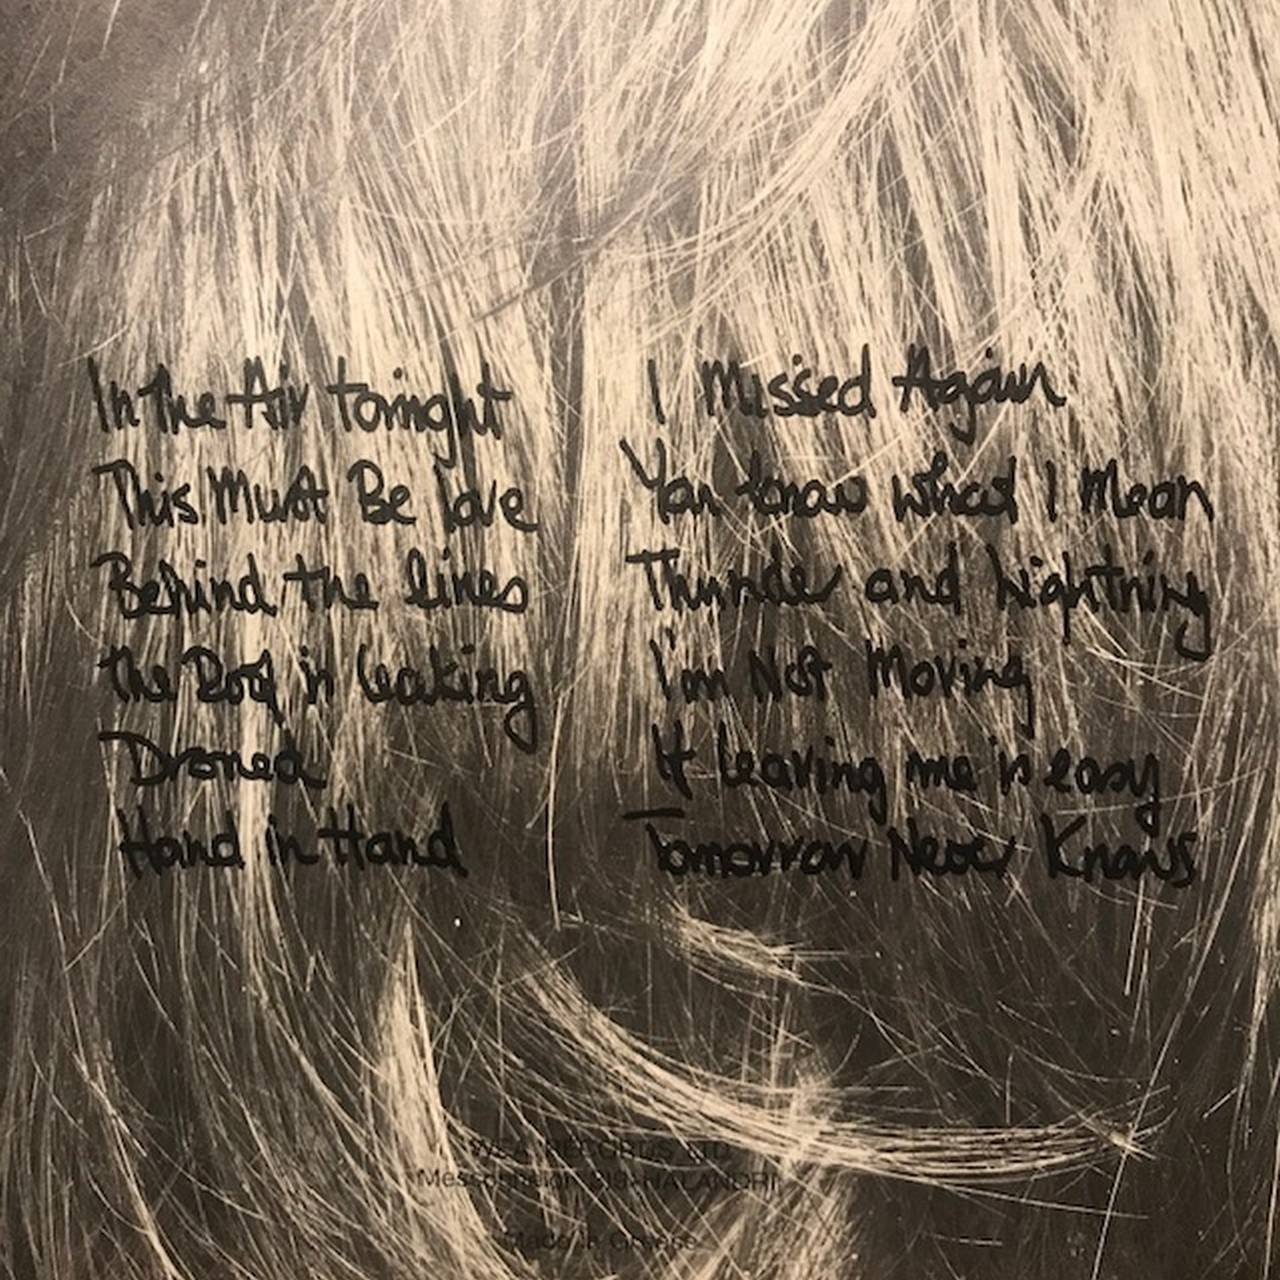 In The Air tonight
This Must Be love
Behind the lines
the Roof is leaking
Droned
Hand in Hand
I Missed Again
You know what I Mean
Thunder and Lightning
I'm Not Moving
If leaving me is easy
Tomorrow Never Knows
WEA RECORDS LTD
Made in Greece